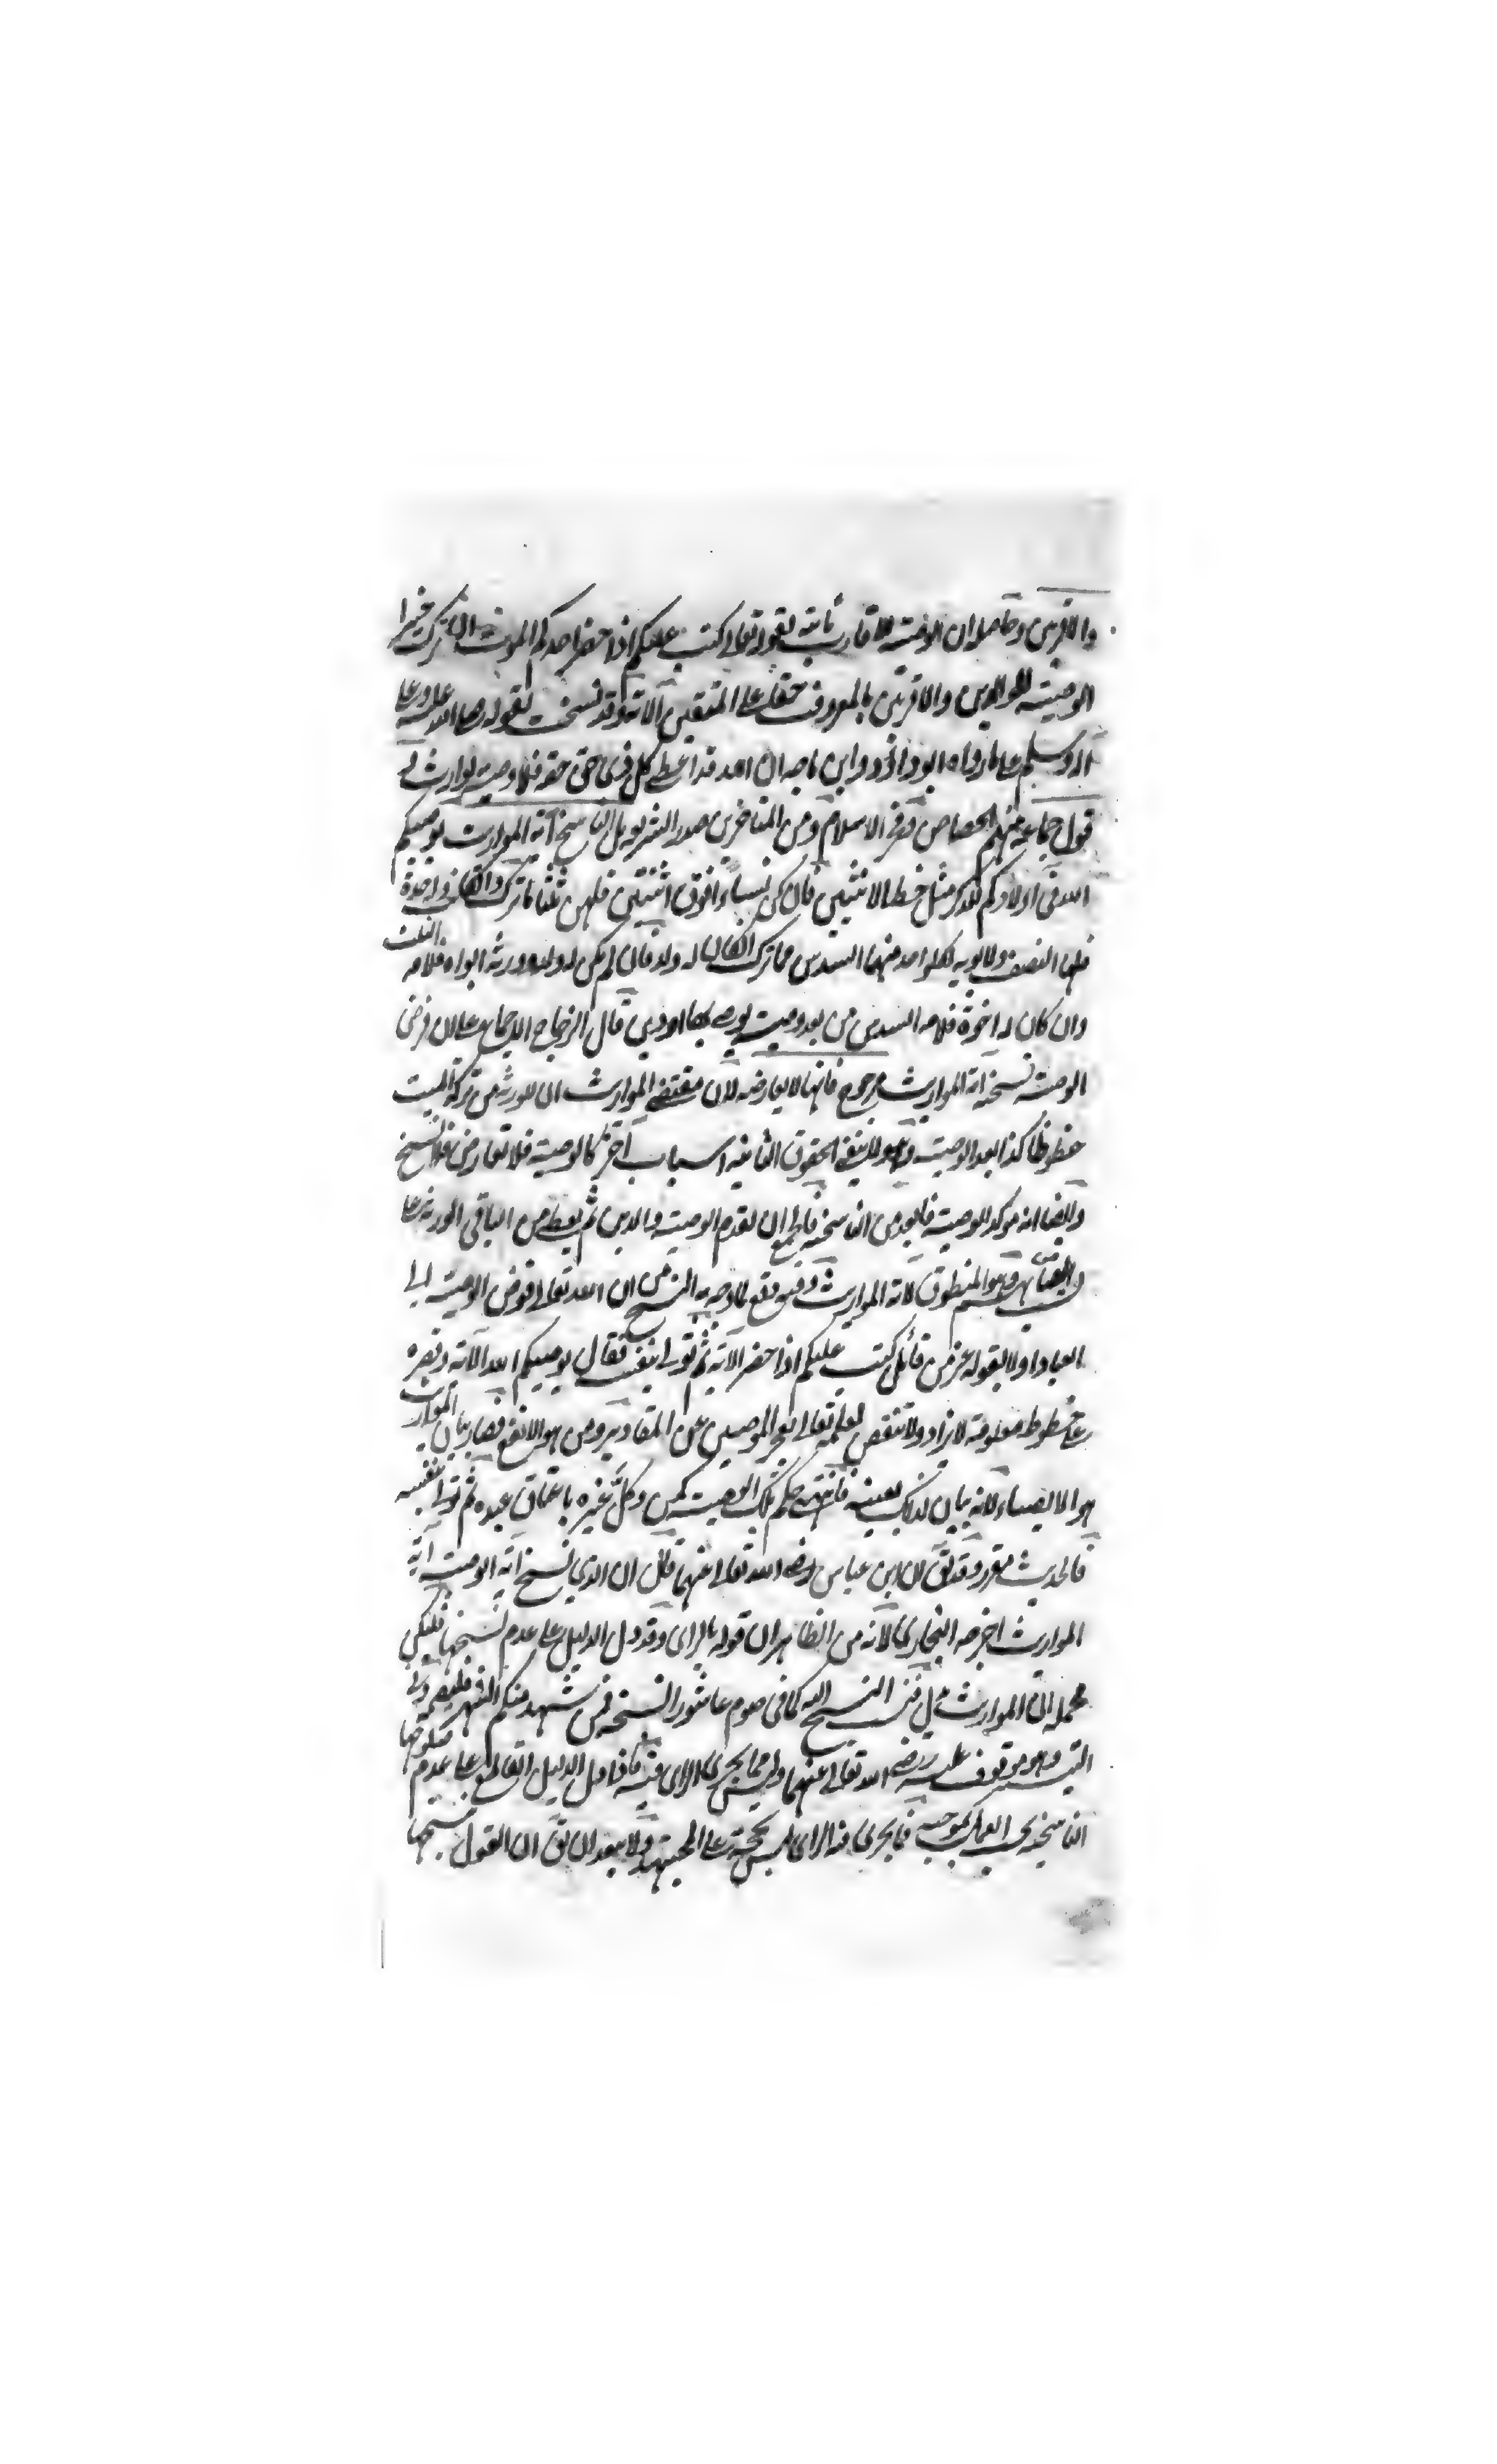 والاقربين وحاصله ان الوصية للاقارب ثابتة بقوله تعالى كتب عليكم اذا حضر احدكم الموت ان ترك خيرا
الوصية للوالدين والاقربين بالمعروف حقا على المتقين الآية وقد نسخت بقوله صلى الله عليه وعلى
آله وسلم على ما رواه ابو داؤد وابن ماجه ان الله قد اعطى كل ذى حق حقه فلا وصية لوارث فى
قول جماعة منهم الجصاص وفخر الاسلام ومن المتاخرين صدر الشريعة بل الناسخ آية المواريث يوصيكم
الله فى اولادكم للذكر مثل حظ الانثيين فان كن نساء فوق اثنتين فلهن ثلثا ما ترك وان كانت واحدة
فلها النصف ولابويه لكل واحد منهما السدس مما ترك ان كان له ولد فان لم يكن له ولد وورثه ابواه فلامه الثلث
وان كان له اخوة فلامه السدس من بعد وصية يوصى بها او دين قال الزجاج الاجماع على ان فرض
الوصية نسخه آية المواريث مرجوح فانها لا يعارضه لان مقتضى المواريث ان للورثة من تركة الميت
حظوظا كذا بعد الوصية وهو لا ينفى الحقوق الثابتة اسباب اخر كالوصية فلا تعارض فلا نسخ
وايضا انه موكد للوصية فابعد من الناسخية فالجمع ان تقدم الوصية والدين ثم يعطى من الباقى الورثة على
وهو المنطوق لآية المواريث وفيه دفع لما وجه به النسخ من ان الله تعالى فوض الوصية الى
العباد اولا بقوله عز من قائل كتب عليكم اذا حضر الآية ثم تولى بنفسه فقال يوصيكم الله الآية وقصره
على حظوظ معلومة لا يزاد ولا تنقص لعلمه تعالى بعجز الموصين عن المقادير ومن هو الانفع فصار بيان المواريث
هو الايصاء لانه بيان لذلك بعينه فانتهى حكم تلك الوصية كمن وكل غيره باعتاق عبده ثم تولى بنفسه
فالحديث مقرر وقد يق ان ابن عباس رضى الله تعالى عنهما قال ان الذى نسخ آية الوصية آية
المواريث اخرجه البخارى لانه من الظاهر ان قوله بالراى وقد دل الدليل على عدم نسخها فليكن
محمله آية المواريث النسخ اليه كما فى صوم عاشورا نسخه فمن شهد منكم الشهر فليصمه وفى
وهو موقوف عليه رضى الله تعالى عنهما وليس مما يجرى الراى فيه فاذا دل الدليل القاطع على عدم صلوحها
الناسخية يجب العمل بموجبه فما يجرى فيه الراى ليس بحجة على المجتهد ولا يبعد ان يق ان القول بنسخها